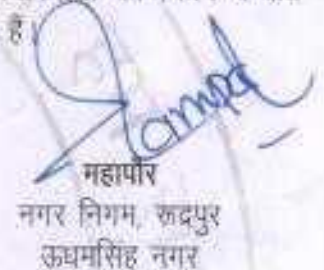 है।
महापौर
नगर निगम, रूद्रपुर
ऊधमसिंह नगर